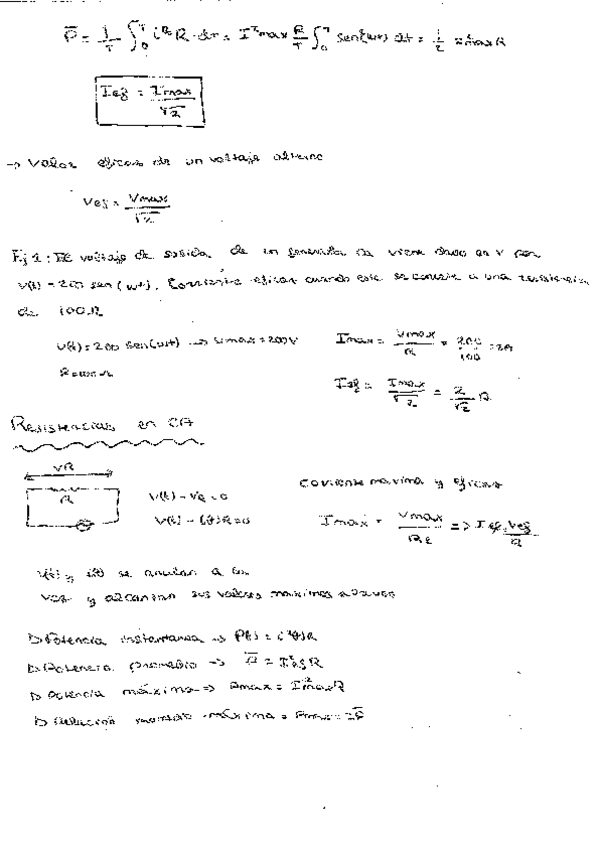 P̅ = 1/T ∫₀ᵀ i²R · dt = I²max R/T ∫₀ᵀ sen²(wt) dt = 1/2 I²max R
Ief = Imax/√2
→ Valor eficaz de un voltaje alterno
Vef = Vmax/√2
Ej 1: El voltaje de salida de un generador CA viene dado en V por
V(t) = 200 sen(wt). Corriente eficaz cuando este se conecta a una resistencia
de 100Ω
V(t) = 200 sen(wt) → Vmax = 200V
Imax = Vmax/R = 200/100 = 2A
R = 100Ω
Ief = Imax/√2 = 2/√2 A
Resistencias en CA
VR
R
V(t) - VR = 0
V(t) - i(t)R = 0
Corriente maxima y eficaz
Imax = Vmax/R => Ief = Vef/R
V(t) y i(t) se anulan a la
vez y alcanzan sus valores maximos a la vez
▷ Potencia instantanea → P(t) = i²(t)R
▷ Potencia promedio → P̅ = I²ef R
▷ Potencia máxima => Pmax = I²max R
▷ Relación máxima = Pmax = 2P̅